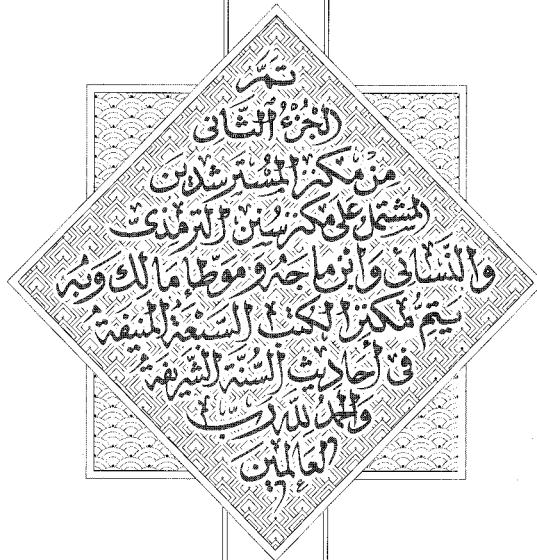 تمَّ
الجُزْءُ الثَّانِى
مِنْ مَكنز المُسْترشدِين
المشتمل على مكنز سُنِن الترمذى
والنّسَائى وَابْن ماجَه وموَطأ مالك وَبه
يتمّ المكنز الكتب السّبعَة المنيفة
فى أحَاديث السُنّة الشّريفة
وَالحمدُ لله رَبّ
العَالمين